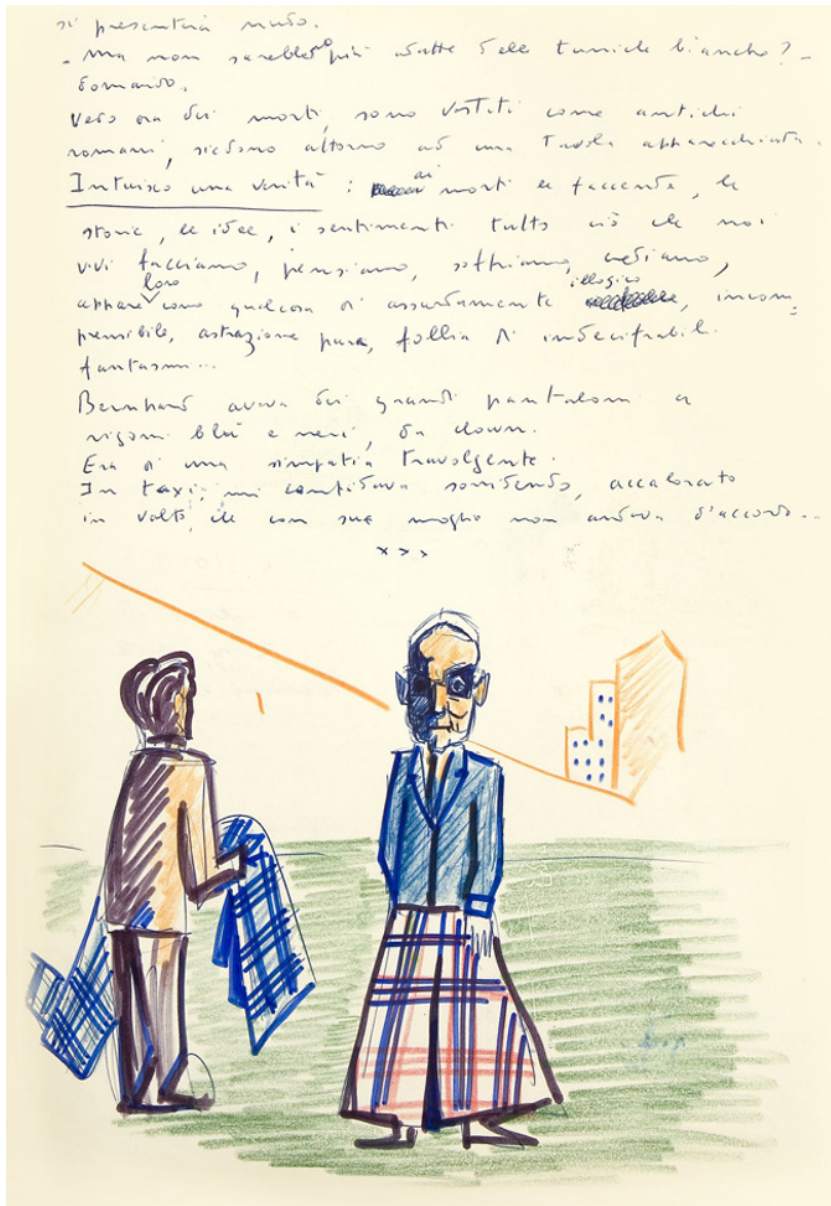 si presenterà nudo.
- Ma non sarebbero più adatte delle tuniche bianche? -
domando.
Vedo ora dei morti, sono vestiti come antichi
romani, siedono attorno ad una tavola apparecchiata.
Intuisco una verità : ai morti le faccende, le
storie, le idee, i sentimenti tutto ciò che noi
vivi facciamo, pensiamo, soffriamo, crediamo,
appare loro come qualcosa di assurdamente illogico, incom=
prensibile, astrazione pura, follia di indecifrabili
fantasmi...
Bernhard aveva dei grandi pantaloni a
rigoni blu e neri, da clown.
Era di una simpatia travolgente.
In taxi, mi confidava sorridendo, accalorato
in volto, che con sua moglie non andava d'accordo...
x > >